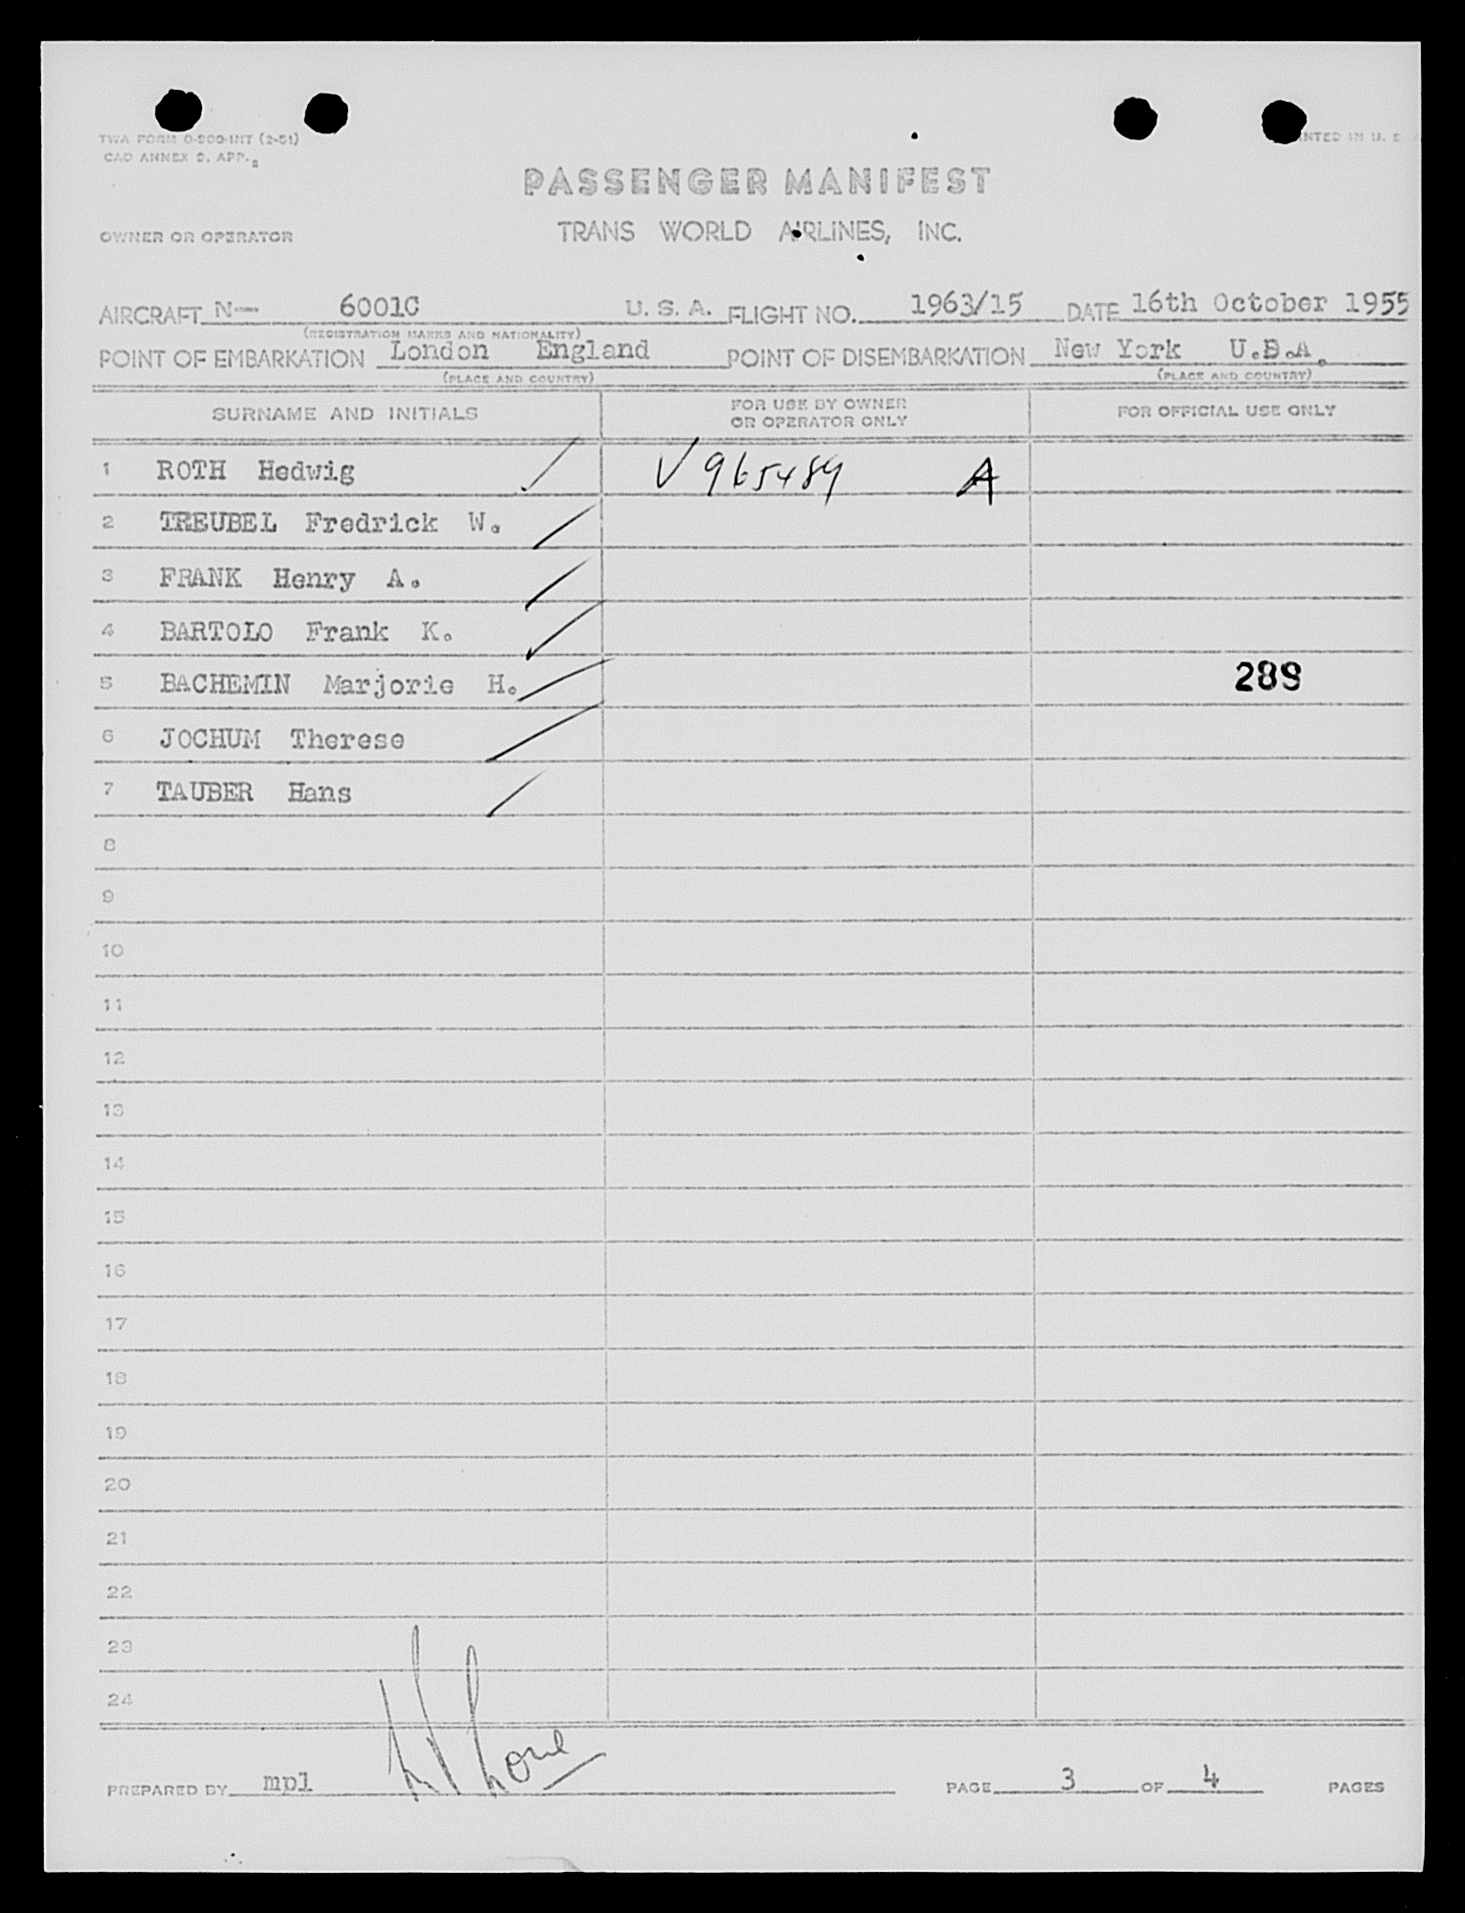 TWA FORM O-900-INT (2-51)
NTED IN U. S
CAO ANNEX 9, APP.
PASSENGER MANIFEST
OWNER OR OPERATOR TRANS WORLD AIRLINES, INC.
AIRCRAFT N--- 6001C U. S. A. FLIGHT NO. 1963/15 DATE 16th October 1955
(REGISTRATION MARKS AND NATIONALITY)
POINT OF EMBARKATION London England POINT OF DISEMBARKATION New York U.S.A.
(PLACE AND COUNTRY) (PLACE AND COUNTRY)
SURNAME AND INITIALS FOR USE BY OWNER OR OPERATOR ONLY FOR OFFICIAL USE ONLY
1 ROTH Hedwig V 965489 A
2 TREUBEL Fredrick W.
3 FRANK Henry A.
4 BARTOLO Frank K.
5 BACHEMIN Marjorie H. 289
6 JOCHUM Therese
7 TAUBER Hans
8
9
10
11
12
13
14
15
16
17
18
19
20
21
22
23
24
PREPARED BY mpl PAGE 3 OF 4 PAGES